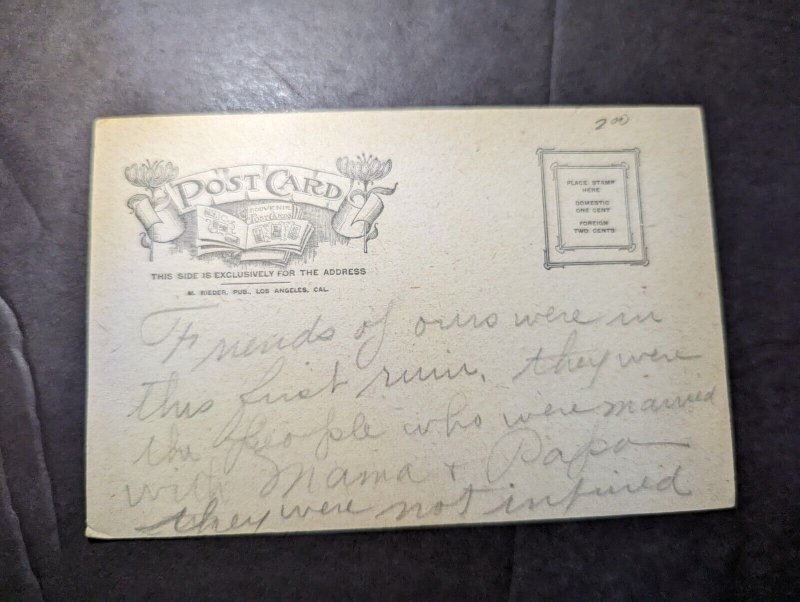 2.00
POST CARD
SOUVENIR
POST CARDS
PLACE STAMP
HERE
DOMESTIC
ONE CENT
FOREIGN
TWO CENTS
THIS SIDE IS EXCLUSIVELY FOR THE ADDRESS
M. RIEDER, PUB., LOS ANGELES, CAL.
Friends of ours were in
this first ruin, they were
the people who were married
with Mama + Papa
they were not injured